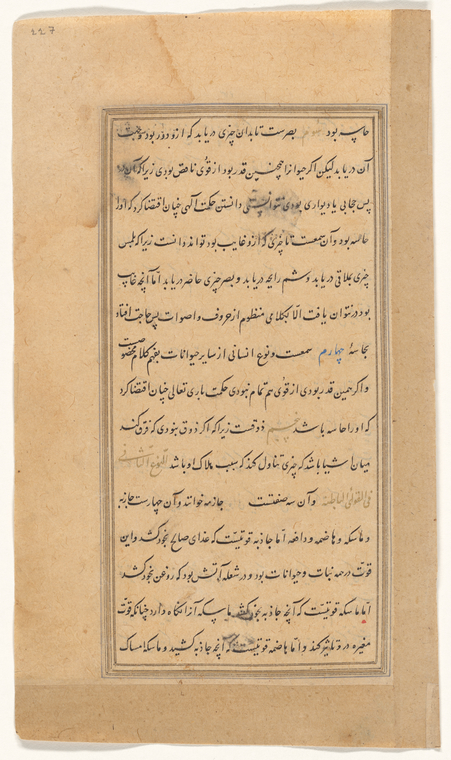 ۲۲۷
حاسه بود سوم بصرست تا بدان چیزی دریابد که ازو دور بود و
آن دریابد لیکن اگر حیوانرا همچنین قدر بود از قوی ناقص بودی زیرا که آن
پس حجابی یا دیواری بودی نتوانستی دانستن حکمت آلهی چنان اقتضا کرد که اورا
حاسه بود و آن سمعست تا چیزی که ازو غایب بود تواند دانست زیرا که بلمس
چیزی ملاقی دریابد و بشم رایحه دریابد و ببصر چیزی حاضر دریابد اما آنچه غایب
بود در نتوان یافت الا بکلامی منظوم از حروف و اصوات پس حاجت افتاد
بحاسهٔ چهارم سمعست و نوع انسانی از سایر حیوانات بفهم کلام مخصوصست
و اگر همین قدر بودی از قوی هم تمام نبودی حکمت باری تعالی چنان اقتضا کرد
که اورا حاسه باشد پنجم ذوقست زیرا که اگر ذوق نبودی که فرق کند
میان اشیا باشد که چیزی تناول کند که سبب هلاک او باشد النوع الثانی
فی القوی الباطنة و آن سه صنفست جاذمه خوانند و آن چهارست جاذبه
و ماسکه و هاضمه و دافعه اما جاذبه قوتیست که غذای صالح بخود کشد و این
قوت در همه نبات و حیوانات بود و در شعله آتش بود که روغن بخود کشد
اما ماسکه قوتیست که آنچه جاذبه بخود کشد ماسکه آنرا نگاه دارد چنانکه قوت
مغیره درو تاثیر کند و اما هاضمه قوتیست که آنچه جاذبه کشید و ماسکه امساک